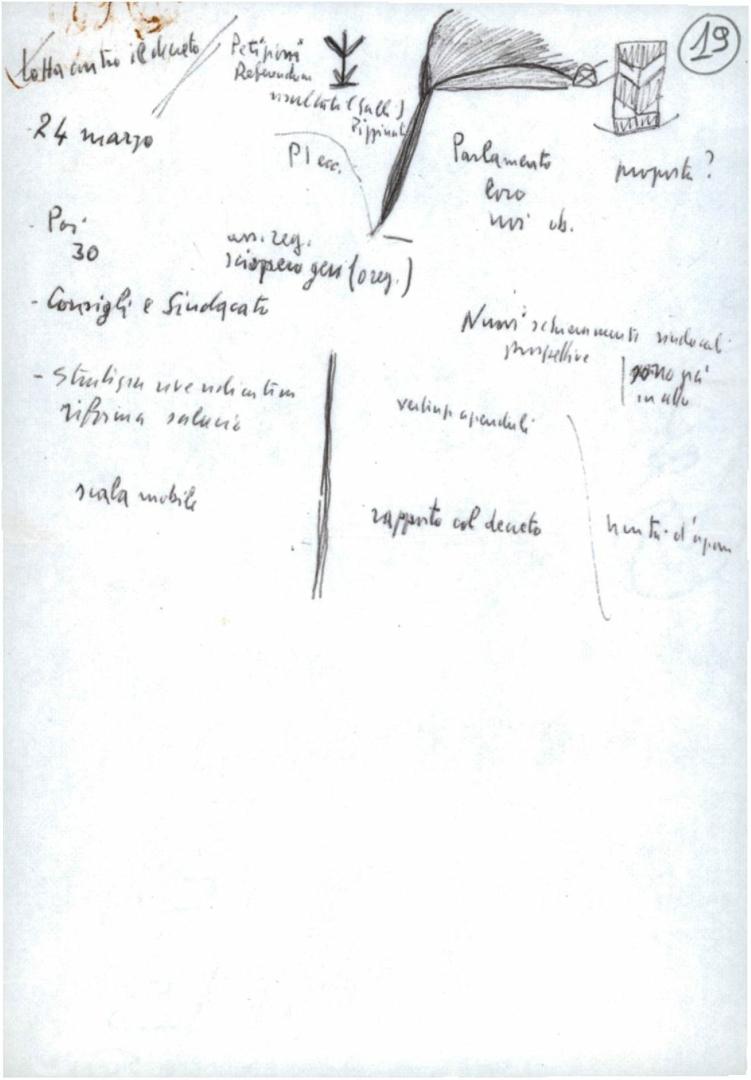 19
Lotta contro il decreto
Petizioni
Referendum
risultati (
24 marzo
Pl ecc.
Parlamento
loro
noi ob.
proposta?
- Poi
30
ass. reg.
sciopero gen (o reg.)
- Consigli e Sindacato
Nuovi schieramenti sindacali
prospettive
sono già
in atto
- Strategia rivendicativa
riforma salario
scala mobile
rapporto col decreto
unità d'azione